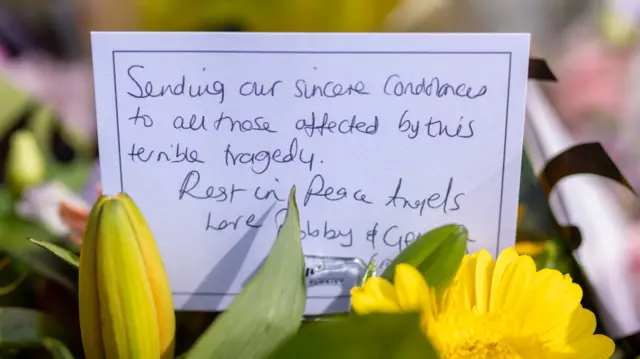 Sending our sincere Condolences
to all those affected by this
terrible tragedy.
Rest in Peace Angels
Love Bobby &